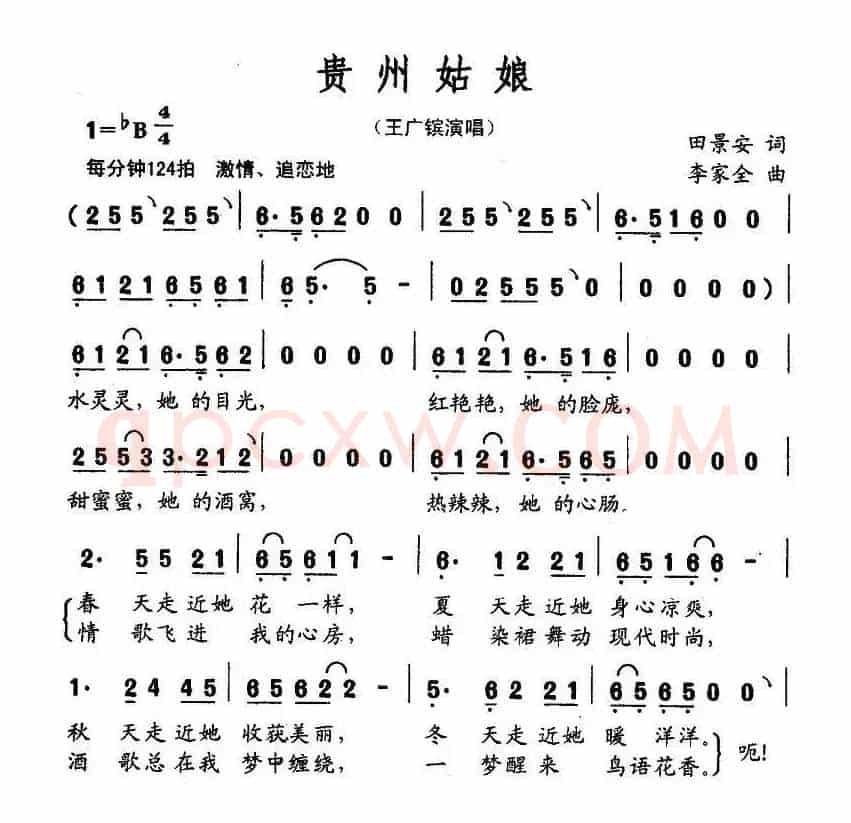 贵州姑娘
1=♭B 4/4
（王广镔演唱）
田景安 词
每分钟124拍 激情、追恋地
李家全 曲
(255 255 | 6·56200 | 255 255 | 6·51600 |
61216561 | 65· 5 - | 0255550 | 0000) |
61216·562 | 0000 | 61216·516 | 0000 |
水灵灵，她 的目光， 红艳艳，她 的脸庞，
qpcxw.COM
255333·212 | 0000 | 61216·565 | 0000 |
甜蜜蜜，她 的酒窝， 热辣辣，她 的心肠.
2· 55 21 | 65611 - | 6· 12 21 | 65166 - |
春 天走近她 花 一样， 夏 天走近她 身心凉爽，
情 歌飞进 我的心房， 蜡 染裙舞动 现代时尚，
1· 24 45 | 65622 - | 5· 62 21 | 656500 |
秋 天走近她 收获美丽， 冬 天走近她 暖 洋洋。
酒 歌总在我 梦中缠绕， 一 梦醒来 鸟语花香。 呃!